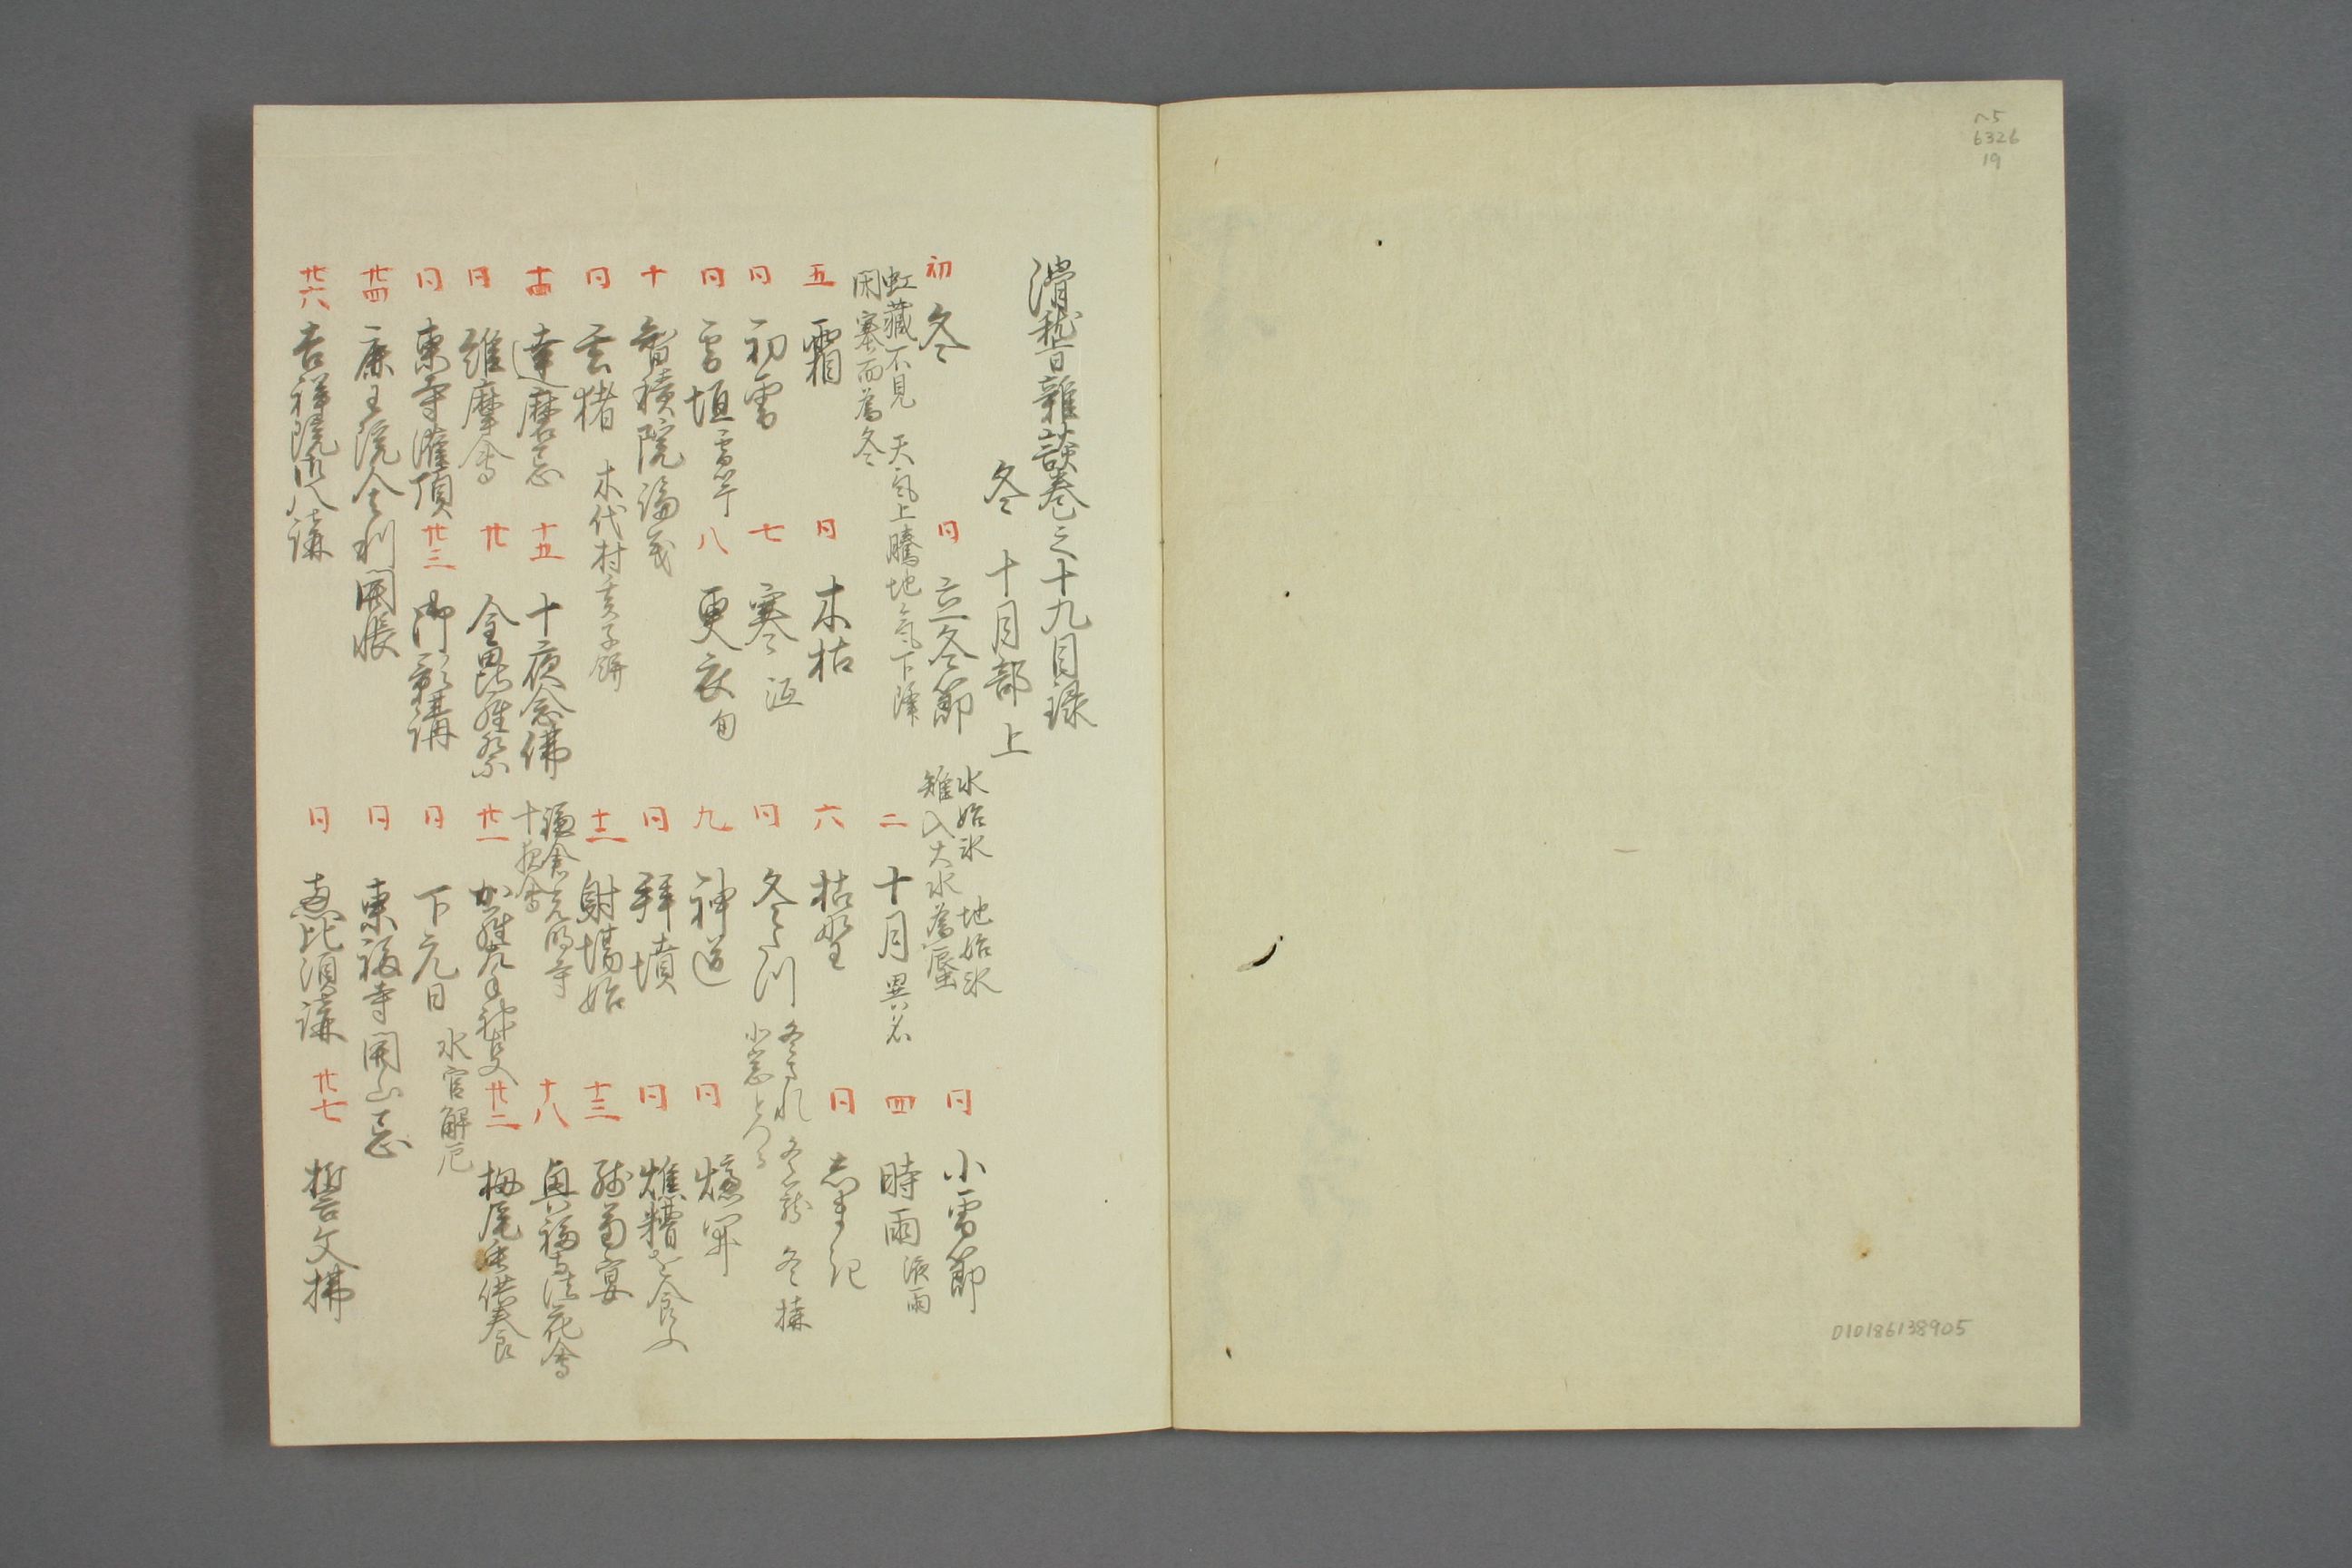 へ5
6326
19
D10186138905
滑稽雑談巻之十九目録
冬 十月部 上
初 冬 同 立冬節 水始氷 地始氷 雉入大水為蜃 同 小雪節
虹藏不見 天気上騰地気下降 閉塞而為冬 二 十月 異名 四 時雨 液雨
五 霜 同 木枯 六 枯野 同 志まき
同 初雪 七 寒 冱 同 冬川 冬され 冬籠 冬構
同 雪垣 雪竿 八 更衣 旬 九 神送 同 爐開
十 智積院論義 同 拝墳 同 燋糟を食ふ
同 玄猪 木代村亥子餅 十二 射場始 十三 残菊宴
十四 達磨忌 十五 十夜念佛 鎌倉光明寺 十夜会 十八 興福寺法花会
同 維摩会 廿 金毘羅祭 廿一 廿二 栂尾虫供養
同 東寺灌頂 廿三 御影講 同 下元日 水官解厄
廿四 鹿王院舎利開帳 同 東福寺開山忌
廿六 吉祥院法八講 同 恵比須講 廿七 誓文払